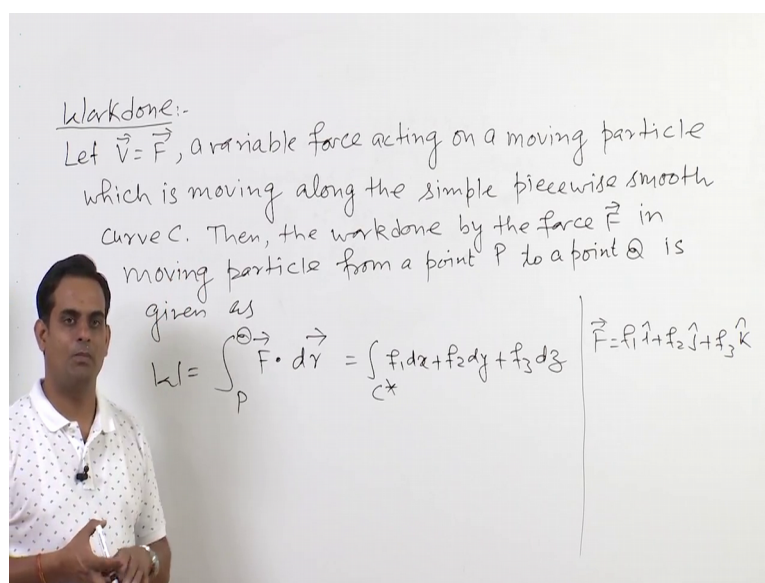 Workdone:-
Let V⃗ = F⃗, a variable force acting on a moving particle
which is moving along the simple piecewise smooth
curve C. Then, the workdone by the force F⃗ in
moving particle from a point P to a point Q is
given as
W = ∫_P^Q F⃗ · dr⃗ = ∫_{C*} f₁dx + f₂dy + f₃dz
F⃗ = f₁î + f₂ĵ + f₃k̂